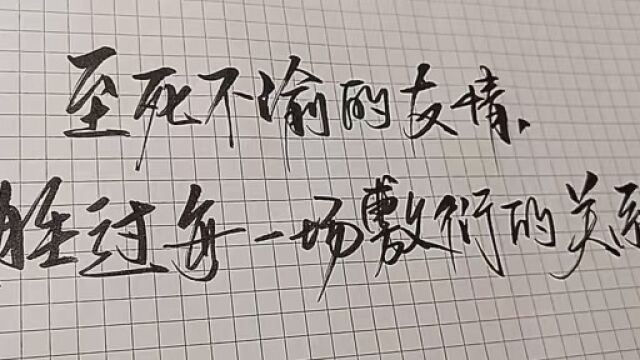 至死不渝的友情.
胜过每一场敷衍的关系